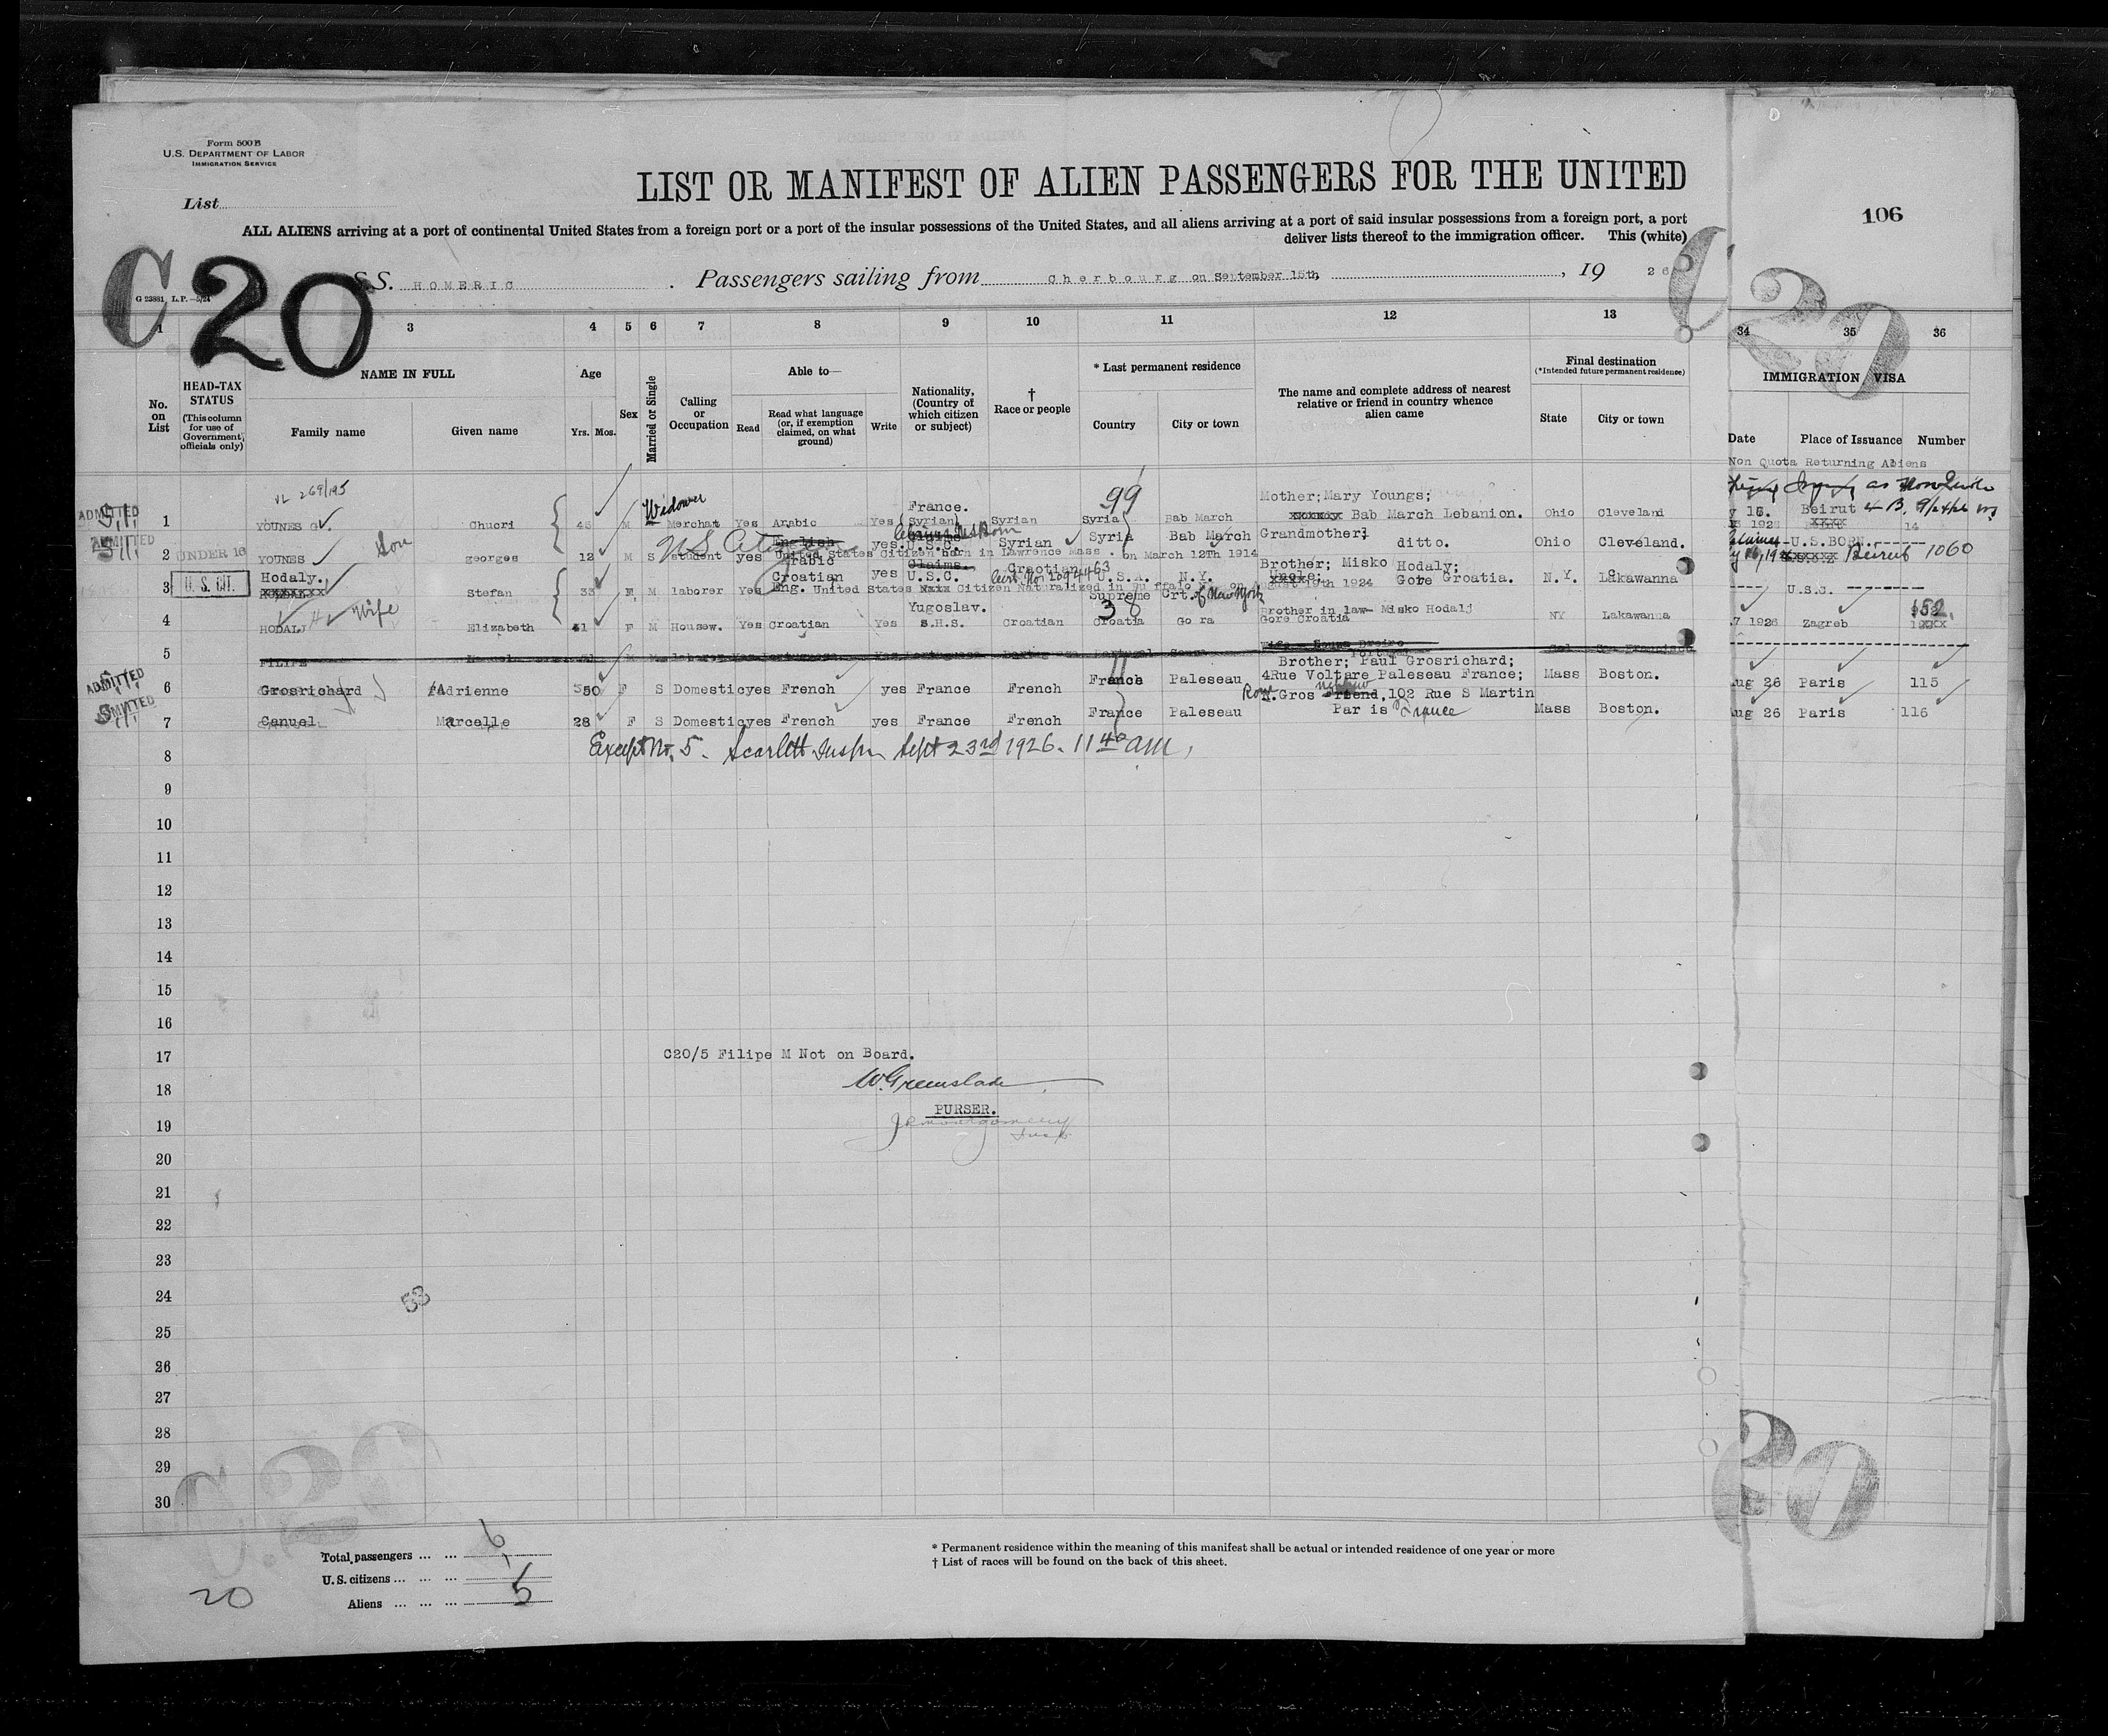 Form 500 B
U.S. DEPARTMENT OF LABOR
IMMIGRATION SERVICE
LIST OR MANIFEST OF ALIEN PASSENGERS FOR THE UNITED
List
106
ALL ALIENS arriving at a port of continental United States from a foreign port or a port of the insular possessions of the United States, and all aliens arriving at a port of said insular possessions from a foreign port, a port
deliver lists thereof to the immigration officer. This (white)
C 20
S.S. HOMERIC . Passengers sailing from Cherbourg on September 15th, , 19 26
G 23881 L.P.—5/24
1 3 4 5 6 7 8 9 10 11 12 13 34 35 36
No. on List
HEAD-TAX STATUS
(This column for use of Government officials only)
NAME IN FULL
Family name Given name
Age
Yrs. Mos.
Sex
Married or Single
Calling or Occupation
Able to—
Read
Read what language (or, if exemption claimed, on what ground)
Write
Nationality, (Country of which citizen or subject)
† Race or people
* Last permanent residence
Country City or town
The name and complete address of nearest relative or friend in country whence alien came
Final destination
(*Intended future permanent residence)
State City or town
IMMIGRATION VISA
Date Place of Issuance Number
Non Quota Returning Aliens
VL 269/195
ADMITTED 1 YOUNES G. Chucri 45 M Widower Merchat Yes Arabic Yes France. (Syrian) Syrian Syria 99 Bab March Mother; Mary Youngs; Bab March Lebanion. Ohio Cleveland Beirut 14
ADMITTED UNDER 16 2 YOUNES Son georges 12 M S student yes English Arabic yes. U.S.C. Syrian Syria Bab March Grandmother; ditto. Ohio Cleveland. U.S.BORN. Beirut 1060
US Citizen
United States Citizen born in Lawrence Mass. on March 12Th 1914
U. S. CIT. 3 Hodaly. Stefan 33 M laborer Yes Croatian Eng. yes Claims. U.S.C. Croatian U.S.A. N.Y. Brother; Misko Hodaly; Uncle; Gore Croatia. N.Y. Lakawanna U.S.C.
United States Citizen Naturalized in Buffalo N.Y. on August 19th 1924
Supreme Crt. of New York
4 HODALJ Wife Elizabeth 41 F M Housew. Yes Croatian Yes Yugoslav. S.H.S. Croatian Croatia 38 Go ra Brother in law- Misko Hodalj Gore Croatia NY Lakawanna 7 1926 Zagreb 152.
5 FILIPE
ADMITTED 6 Grosrichard Adrienne 50 F S Domestic yes French yes France French France Paleseau Brother; Paul Grosrichard; 4Rue Voltare Paleseau France; Mass Boston. Aug 26 Paris 115
ADMITTED 7 Canuel Marcelle 28 F S Domestic yes French yes France French France Paleseau Gros nephew Friend, 102 Rue S Martin Par is France Mass Boston. Aug 26 Paris 116
Except No. 5. Scarlett Inspr Sept 23rd 1926. 11 40 am,
8
9
10
11
12
13
14
15
16
17 C20/5 Filipe M Not on Board.
18 W. Greenslade
PURSER.
19 J Montgomery
Insp.
20
21
22
23
24 53
25
26
27
28
29
30
C.20
20
Total passengers ... ... 6
U.S. citizens ... ... ... 1
Aliens ... ... ... 5
20
* Permanent residence within the meaning of this manifest shall be actual or intended residence of one year or more
† List of races will be found on the back of this sheet.